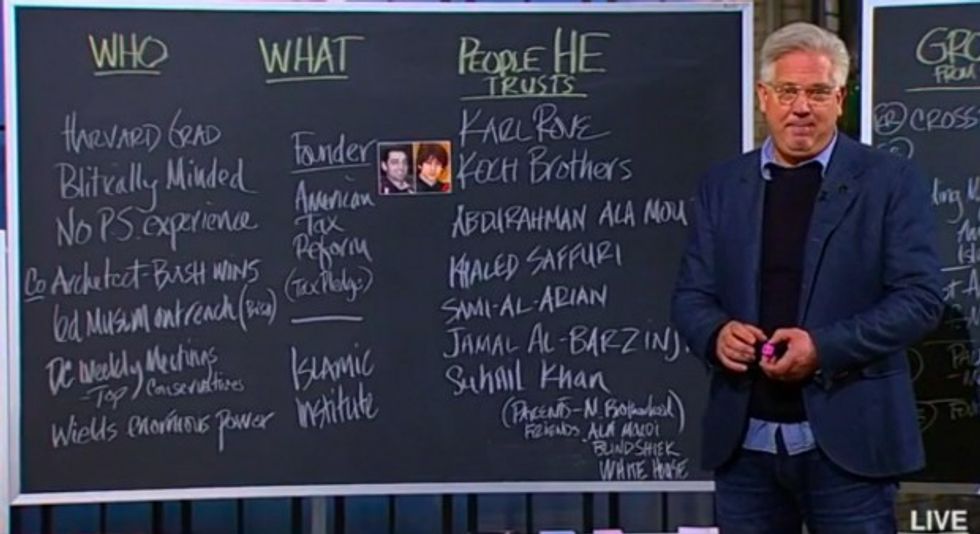 WHO
HARVARD GRAD
Politically Minded
No P.S. experience
Co Architect-BUSH WINS
led Muslim outreach (Bush)
DC Weekly Meetings
-TOP Conservatives
Wields enormous power
WHAT
Founder
American
Tax
Reform
(Tax Pledge)
Islamic
Institute
PEOPLE HE
TRUSTS
KARL ROVE
KOCH Brothers
ABDURAHMAN ALA MOU
KHALED SAFFURI
SAMI-AL-ARIAN
JAMAL AL-BARZINJI
Suhail Khan
(PARENTS-M. Brotherhood)
FRIENDS ALA MOUDI
BLIND SHIEK
WHITE HOUSE
GRO
FROM
CROSS
LIVE